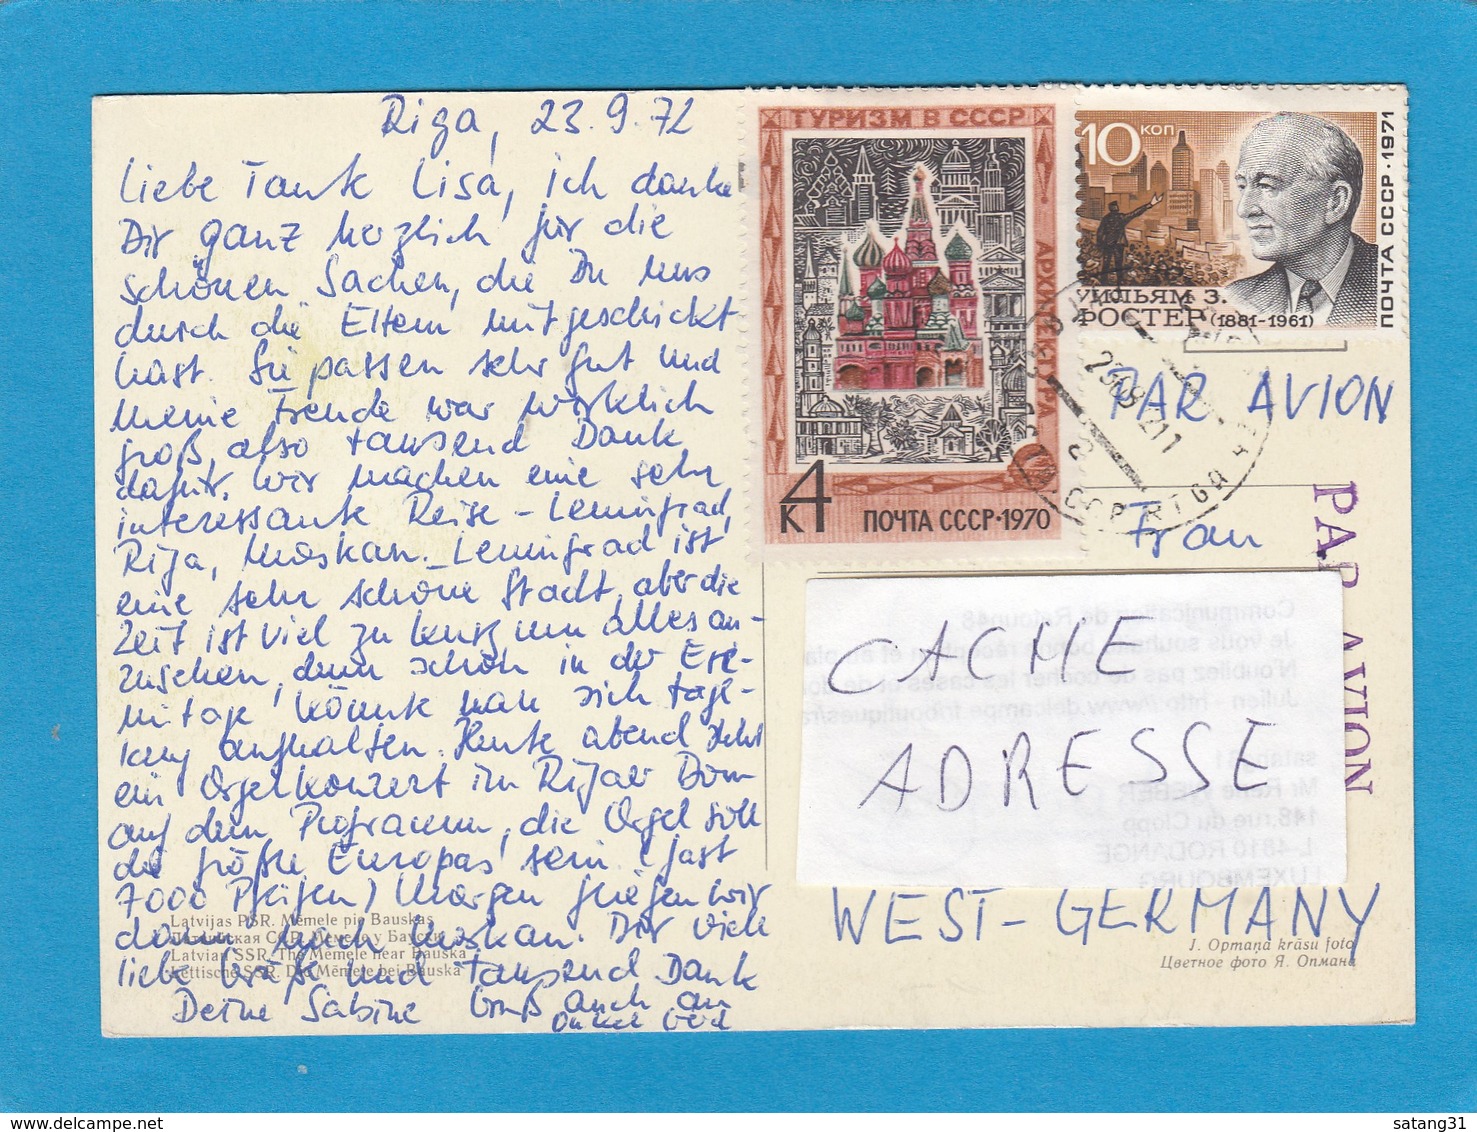 Riga, 23.9.72
Liebe Tante Lisa, ich danke
Dir ganz herzlich für die
schönen Sachen, die Du uns
durch die Eltern mitgeschickt
hast. Sie passen sehr gut und
meine Freude war wirklich
groß also tausend Dank
dafür. Wir machen eine sehr
interessante Reise - Leningrad,
Riga, Moskau. Leningrad ist
eine sehr schöne Stadt, aber die
Zeit ist viel zu kurz um alles an-
zusehen, denn schon in der Ere-
mitage könnte man sich tage-
lang aufhalten. Heute abend steht
ein Orgelkonzert im Rigaer Dom
auf dem Programm, die Orgel soll
die größte Europas sein (fast
7000 Pfeifen) Morgen fliegen wir
dann nach Moskau. Dir viele
liebe Grüße und tausend Dank
Deine Sabine Gruß auch an
Onkel
Latvijas PSR. Mēmele pie Bauskas
Латвийская ССР. Мемеле у Бауски
Latvian SSR. The Mēmele near Bauska
Lettische SSR. Die Mēmele bei Bauska
ТУРИЗМ В СССР
АРХИТЕКТУРА
4 К
ПОЧТА СССР·1970
10 КОП
УИЛЬЯМ З.
ФОСТЕР (1881-1961)
ПОЧТА СССР·1971
RIGA
PAR AVION
PAR AVION
Frau
CACHE
ADRESSE
WEST-GERMANY
J. Ormaņa krāsu foto
Цветное фото Я. Опмана
satang31